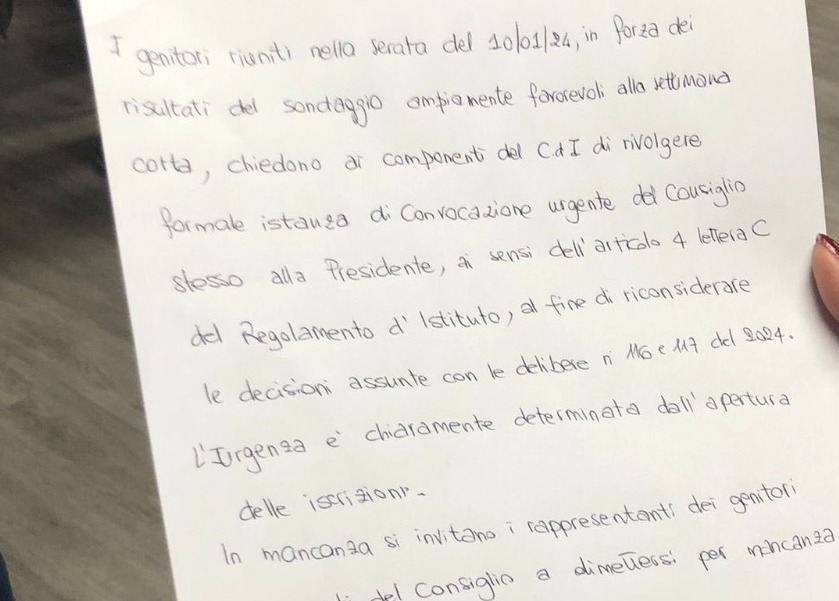 I genitori riuniti nella serata del 10/01/24, in forza dei
risultati del sondaggio ampiamente favorevoli alla settimana
corta, chiedono ai componenti del CdI di rivolgere
formale istanza di Convocazione urgente del Consiglio
stesso alla Presidente, ai sensi dell'articolo 4 lettera C
del Regolamento d'Istituto, al fine di riconsiderare
le decisioni assunte con le delibere n 116 e 117 del 2024.
L'Iurgenza è chiaramente determinata dall'apertura
delle iscrizioni.
In mancanza si invitano i rappresentanti dei genitori
del Consiglio a dimettersi per mancanza